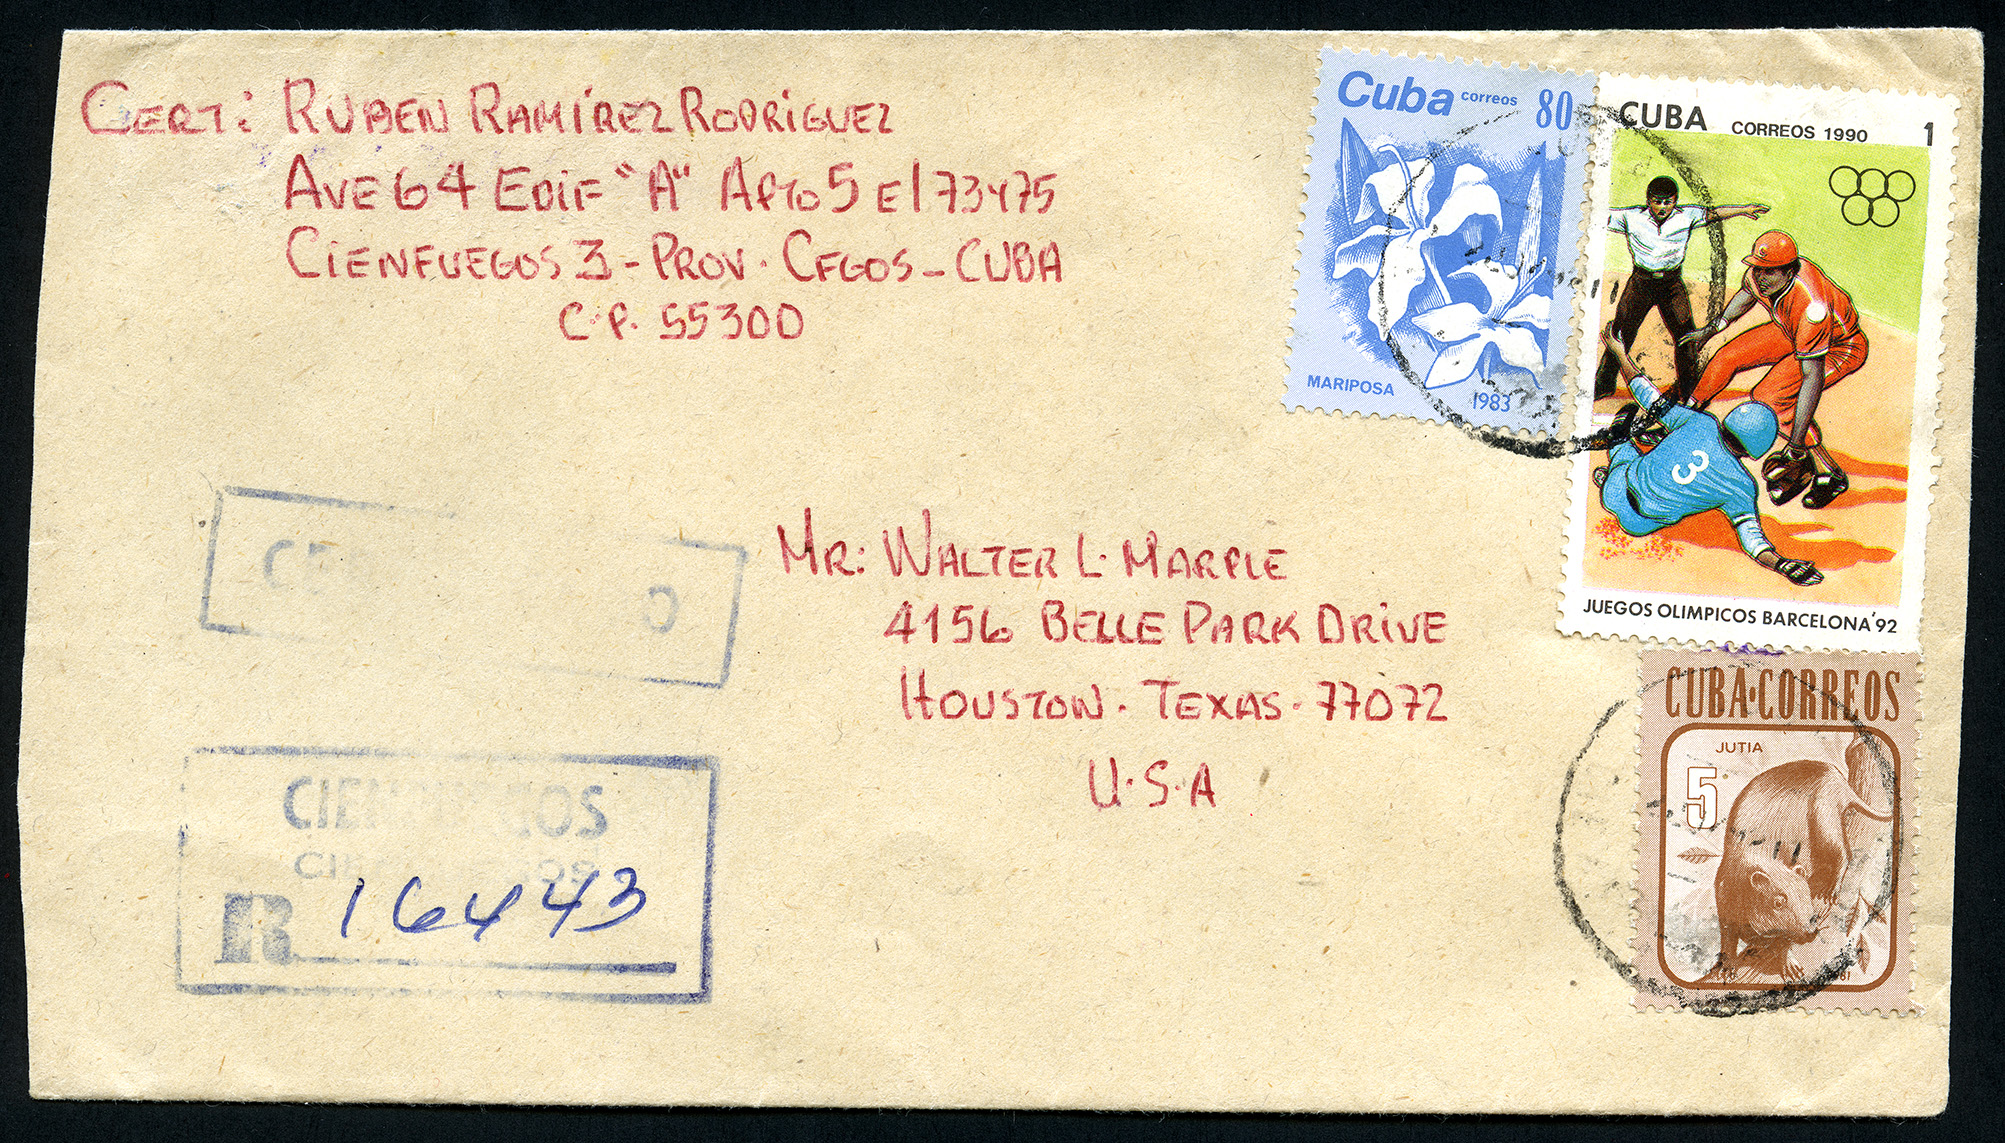 CERT: RUBEN RAMÍREZ RODRIGUEZ
AVE 64 EDIF "A" APTO 5 E/ 73 Y 75
CIENFUEGOS 3 - PROV. CFGOS - CUBA
C.P. 55300
Cuba correos 80
MARIPOSA 1983
CUBA CORREOS 1990 1
3
JUEGOS OLIMPICOS BARCELONA'92
MR: WALTER L. MARPLE
4156 BELLE PARK DRIVE
HOUSTON. TEXAS. 77072
U.S.A
CUBA·CORREOS
JUTIA
5
CIENFUEGOS
R 16443